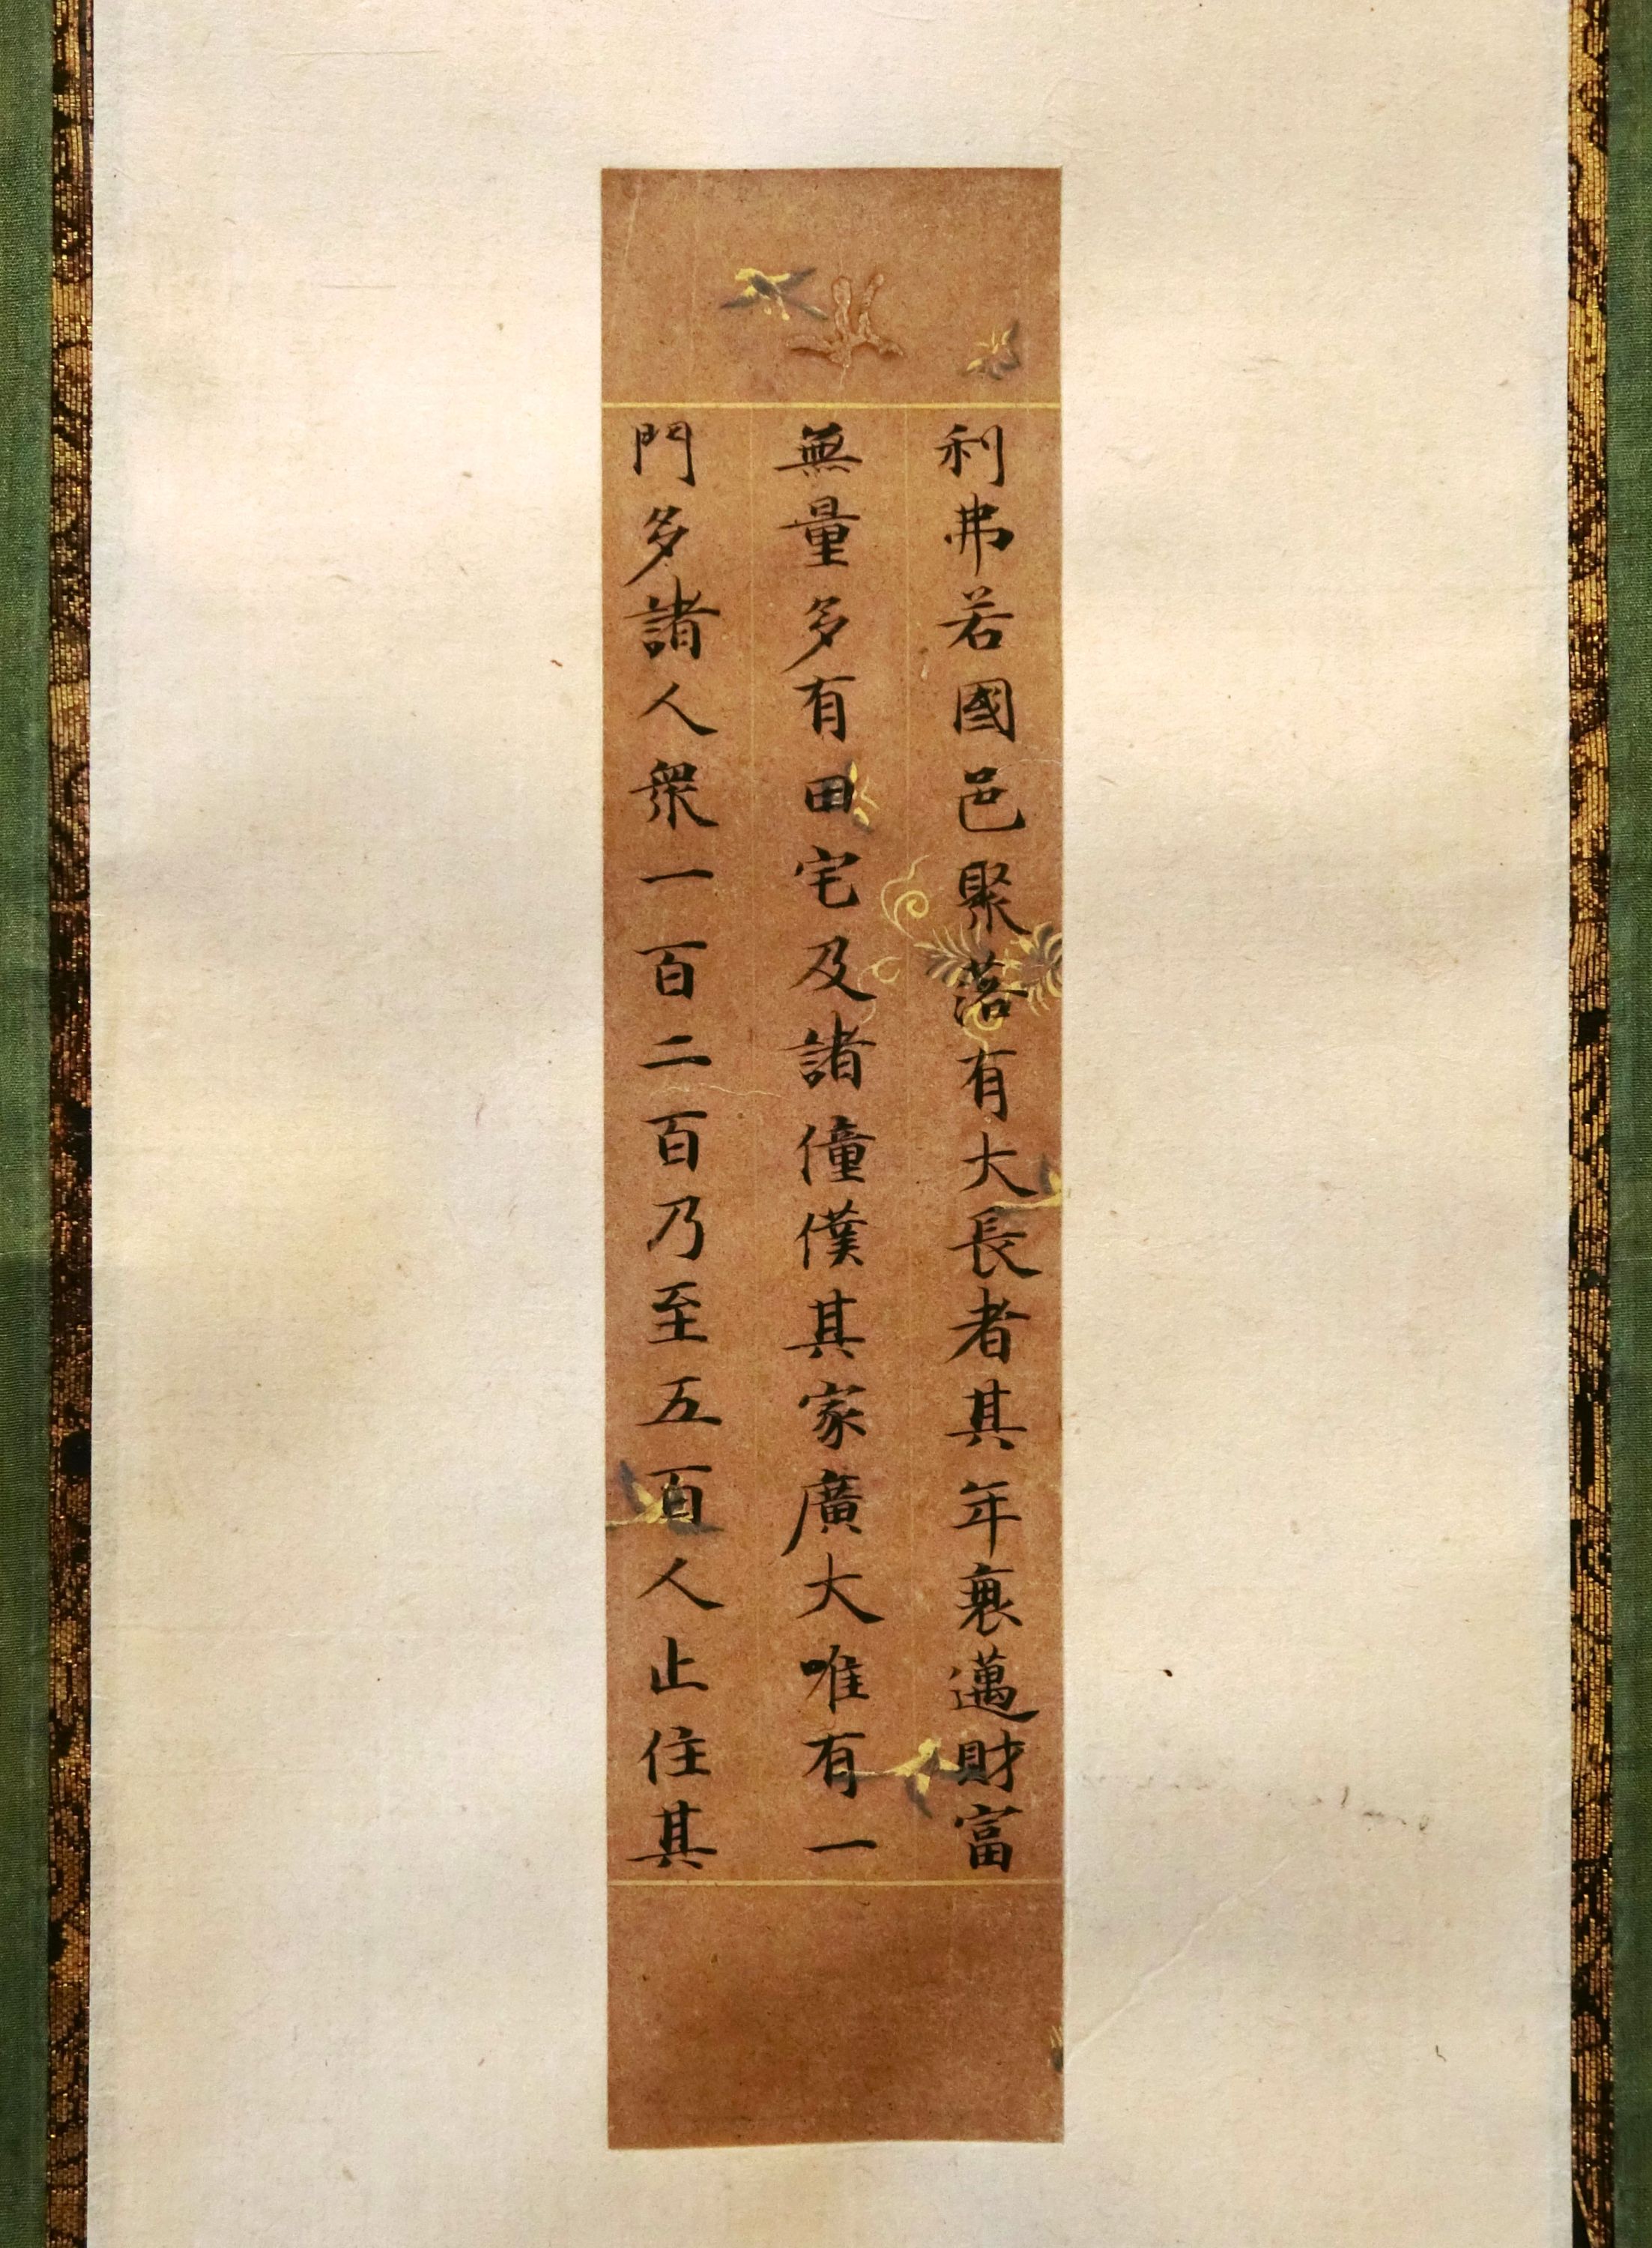 利弗若國邑聚落有大長者其年衰邁財富
無量多有田宅及諸僮僕其家廣大唯有一
門多諸人衆一百二百乃至五百人止住其